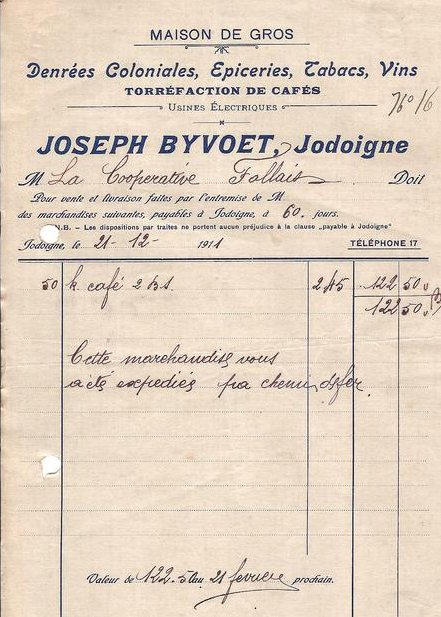 MAISON DE GROS
Denrées Coloniales, Epiceries, Tabacs, Vins
TORRÉFACTION DE CAFÉS
USINES ÉLECTRIQUES
JOSEPH BYVOET, Jodoigne
M La Cooperative Fallais Doit
Pour vente et livraison faites par l'entremise de M
des marchandises suivantes, payables à Jodoigne, à 60 jours.
N.B. - Les dispositions par traites ne portent aucun préjudice à la clause „payable à Jodoigne"
Jodoigne, le 21-12- 1911 TÉLÉPHONE 17
50 k. café 2 Bs. 245 122 50
122 50
Cette marchandise vous
a été expediés par chemin de fer
Valeur de 122.50 au 21 fevrier prochain.